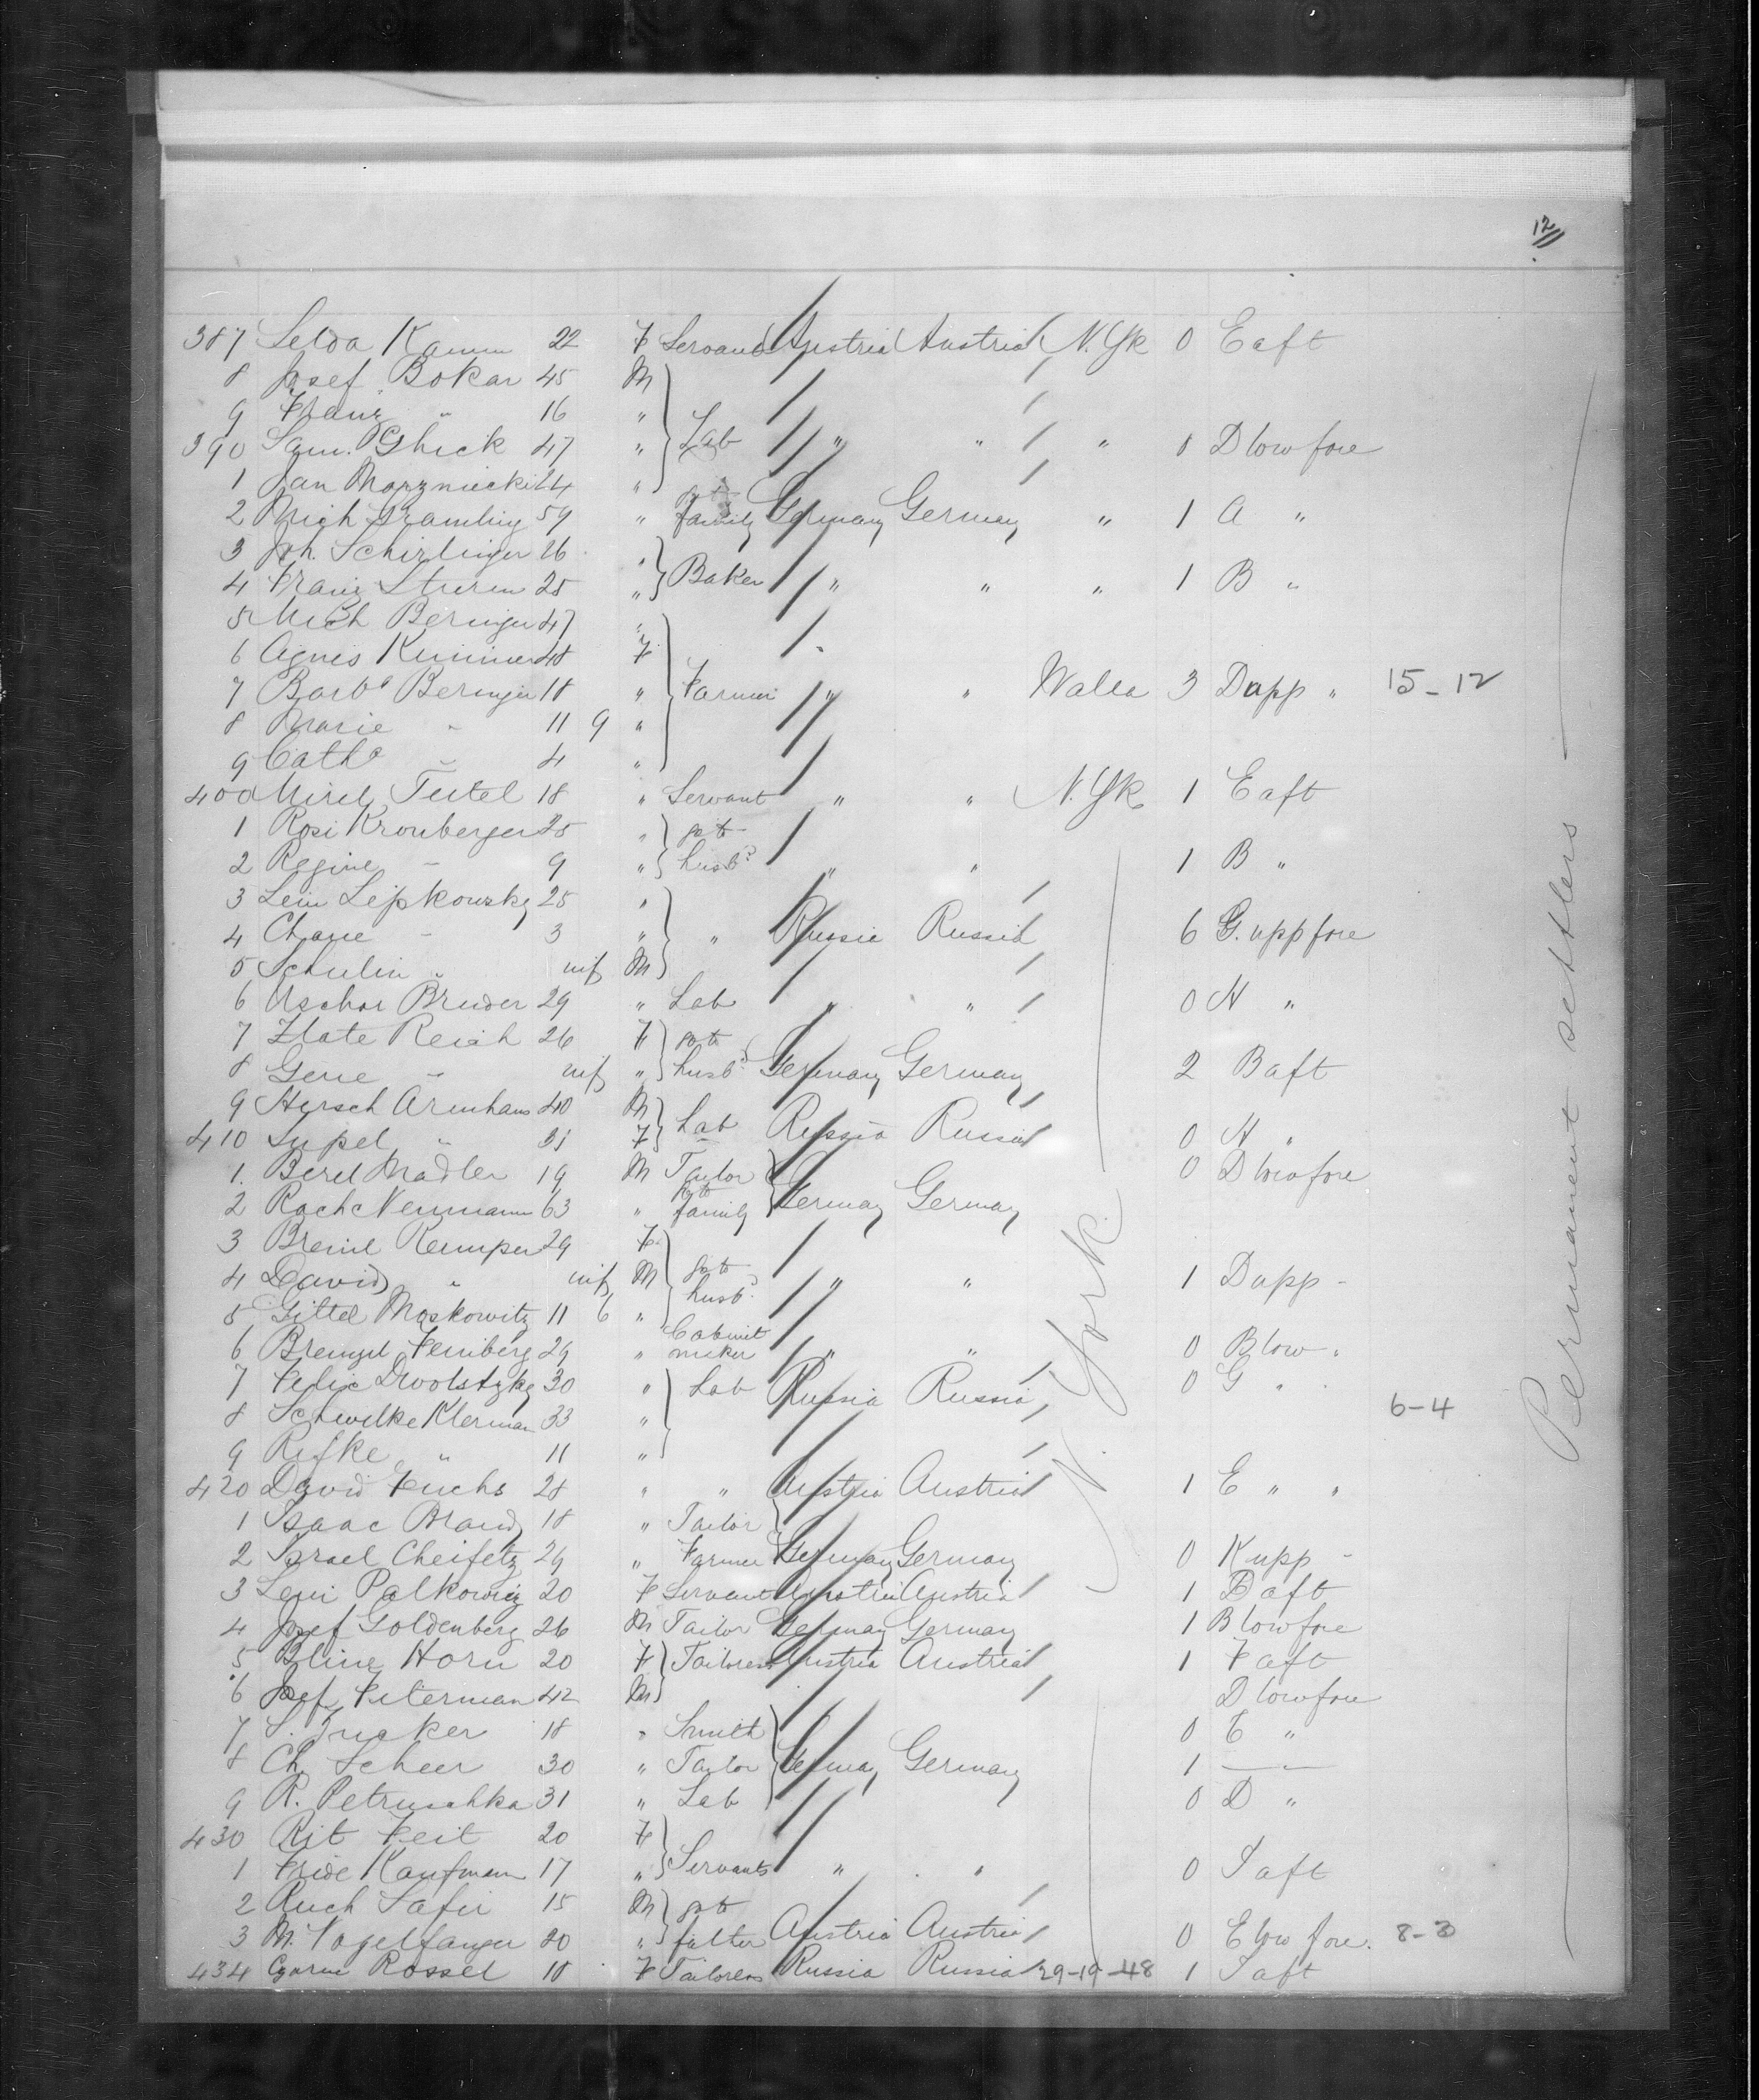 12
387 Selda Kamm 22 F Servant Austria Austria N. Yk 0 E aft
8 Josef Bokar 45 M
9 Franz " 16 "
390 Sam. Ghick 47 " Lab " " " 0 D low fore
1 Jan Marzniecki 24 "
2 Mich 59 " gt family Germany Germany " 1 A "
3 Joh. Schirlinger 26 "
4 Franz Sturm 25 " Baker " " " 1 B "
5 Mich Beringer 47 "
6 Agnes Kummer 48 F
7 Barba Beringer 18 " Farmer " " Walla 3 D upp " 15-12
8 Marie " 11 9 "
9 Catha " 4 "
400 Mirel Teitel 18 " Servant " " N. Yk 1 E aft
1 Rosi Kronberger 25 " gt
2 Regine " 9 " husbd " " 1 B "
3 Leiu Lipkowsky 25 "
4 Chane " 3 " " Russia Russia 6 G. upp fore
5 Schulin " inf M
6 Uschar Bruder 29 " Lab " " 0 H "
7 Zlate Reich 26 F gt
8 Gene " inf " husbd Germany Germany 2 B aft
9 Hersch Arenhaus 40 M
410 " 31 F Lab Russia Russia 0 H "
1. Berel Madler 19 M Tailor 0 D low fore
2 Rach Neumann 63 " gt family Germany Germany
3 Breine Kemper 29 F
4 David " inf M gt husbd " " 1 D upp -
5 Gittel Moskowitz 11 6 "
6 Breinzel Feinberg 29 " Cabinet maker " " 0 B low "
7 Felic 30 " Lab Russia Russia 0 G "
8 Schwelke Klerman 33 " 6-4
9 Rifke " 11 "
420 David Fuchs 28 " " Austria Austria 1 E " "
1 Isaac Brand 18 " Tailor
2 Israel Cheifetz 29 " Farmer Germany Germany 0 K upp -
3 Leni Palkowicz 20 F Servant Austria Austria 1 B aft
4 Josef Goldenberg 26 M Tailor Germany Germany 1 B low fore
5 Bline Horn 20 F Tailoress Austria Austria 1 F aft
6 Josef Feterman 42 M D low fore
7 S. Zucker 18 " Smith 0 E "
8 Ch. Scheer 30 " Tailor Germany Germany 1 — " —
9 R. Petruschka 31 " Lab 0 D "
430 Rit Feit 20 F
1 Fride Kaufmann 17 " Servants " " 0 I aft
2 Ruch Safir 15 M gt
3 M. Vogelfanger 20 " father Austria Austria 0 E low fore. 8-3
434 Rossel 18 F Tailoress Russia Russia 29-19-48 1 I aft
N. York
Permanent settlers